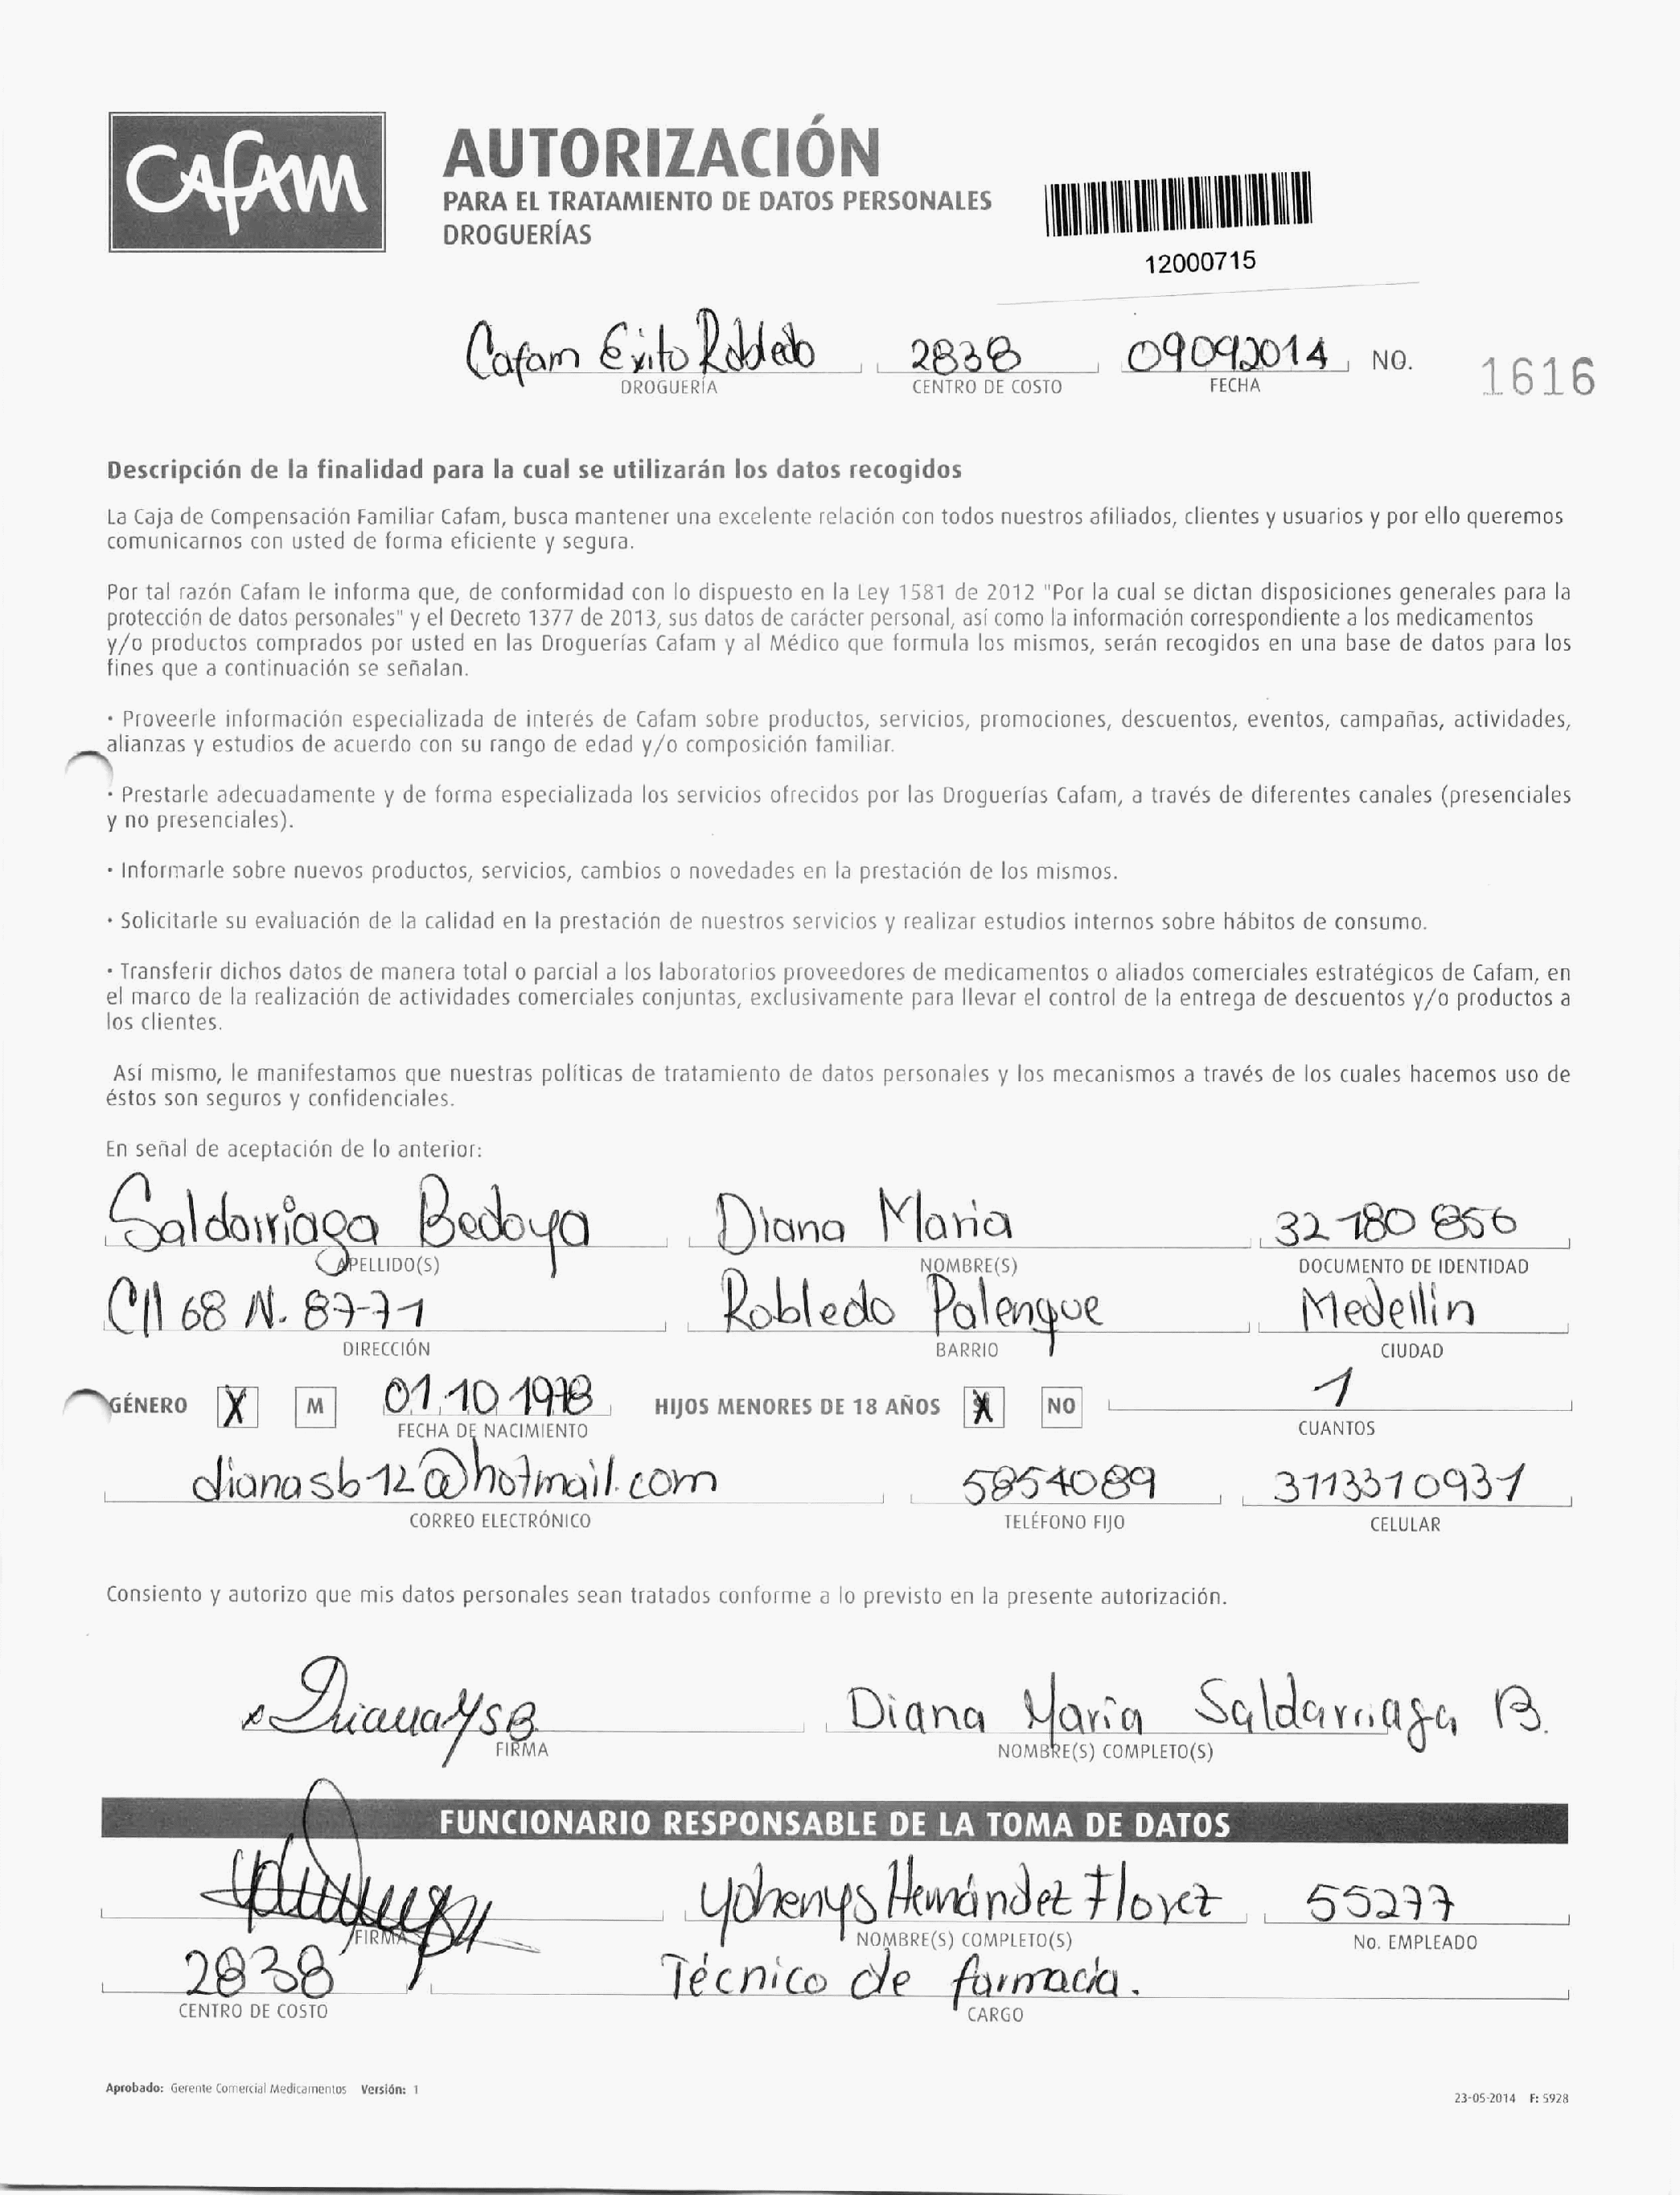 CAFAM
AUTORIZACIÓN
PARA EL TRATAMIENTO DE DATOS PERSONALES
DROGUERÍAS
12000715
Cafam Exito Robledo 2838 09092014 NO. 1616
DROGUERÍA CENTRO DE COSTO FECHA
Descripción de la finalidad para la cual se utilizarán los datos recogidos
La Caja de Compensación Familiar Cafam, busca mantener una excelente relación con todos nuestros afiliados, clientes y usuarios y por ello queremos
comunicarnos con usted de forma eficiente y segura.
Por tal razón Cafam le informa que, de conformidad con lo dispuesto en la Ley 1581 de 2012 "Por la cual se dictan disposiciones generales para la
protección de datos personales" y el Decreto 1377 de 2013, sus datos de carácter personal, así como la información correspondiente a los medicamentos
y/o productos comprados por usted en las Droguerías Cafam y al Médico que formula los mismos, serán recogidos en una base de datos para los
fines que a continuación se señalan.
· Proveerle información especializada de interés de Cafam sobre productos, servicios, promociones, descuentos, eventos, campañas, actividades,
alianzas y estudios de acuerdo con su rango de edad y/o composición familiar.
· Prestarle adecuadamente y de forma especializada los servicios ofrecidos por las Droguerías Cafam, a través de diferentes canales (presenciales
y no presenciales).
· Informarle sobre nuevos productos, servicios, cambios o novedades en la prestación de los mismos.
· Solicitarle su evaluación de la calidad en la prestación de nuestros servicios y realizar estudios internos sobre hábitos de consumo.
· Transferir dichos datos de manera total o parcial a los laboratorios proveedores de medicamentos o aliados comerciales estratégicos de Cafam, en
el marco de la realización de actividades comerciales conjuntas, exclusivamente para llevar el control de la entrega de descuentos y/o productos a
los clientes.
Así mismo, le manifestamos que nuestras políticas de tratamiento de datos personales y los mecanismos a través de los cuales hacemos uso de
éstos son seguros y confidenciales.
En señal de aceptación de lo anterior:
Saldarriaga Bedoya Diana Maria 32 180 856
APELLIDO(S) NOMBRE(S) DOCUMENTO DE IDENTIDAD
Cll 68 N. 87-71 Robledo Palenque Medellin
DIRECCIÓN BARRIO CIUDAD
GÉNERO X M 01.10 1978 HIJOS MENORES DE 18 AÑOS X NO 1
FECHA DE NACIMIENTO CUANTOS
dianasb12@hotmail.com 5854089 3113310931
CORREO ELECTRÓNICO TELÉFONO FIJO CELULAR
Consiento y autorizo que mis datos personales sean tratados conforme a lo previsto en la presente autorización.
x DianaMSB Diana Maria Saldarriaga B.
FIRMA NOMBRE(S) COMPLETO(S)
FUNCIONARIO RESPONSABLE DE LA TOMA DE DATOS
Yohenys Hernández Florez 55277
FIRMA NOMBRE(S) COMPLETO(S) No. EMPLEADO
2838 Técnico de farmacia.
CENTRO DE COSTO CARGO
Aprobado: Gerente Comercial Medicamentos Versión: 1
23-05-2014 F: 5928